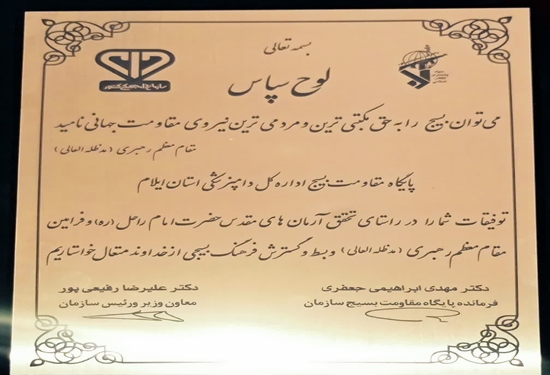 بسمه تعالی
لوح سپاس
می توان بسیج را به حق مکتبی ترین و مردمی ترین نیروی مقاومت جهانی نامید
مقام معظم رهبری (مدظله العالی)
پایگاه مقاومت بسیج اداره کل دامپزشکی استان ایلام
توفیقات شما را در راستای تحقق آرمان های مقدس حضرت امام راحل (ره) و فرامین
مقام معظم رهبری (مدظله العالی) و بسط و گسترش فرهنگ بسیجی از خداوند متعال خواستاریم
دکتر مهدی ابراهیمی جعفری
فرمانده پایگاه مقاومت بسیج سازمان
دکتر علیرضا رفیعی پور
معاون وزیر و رئیس سازمان